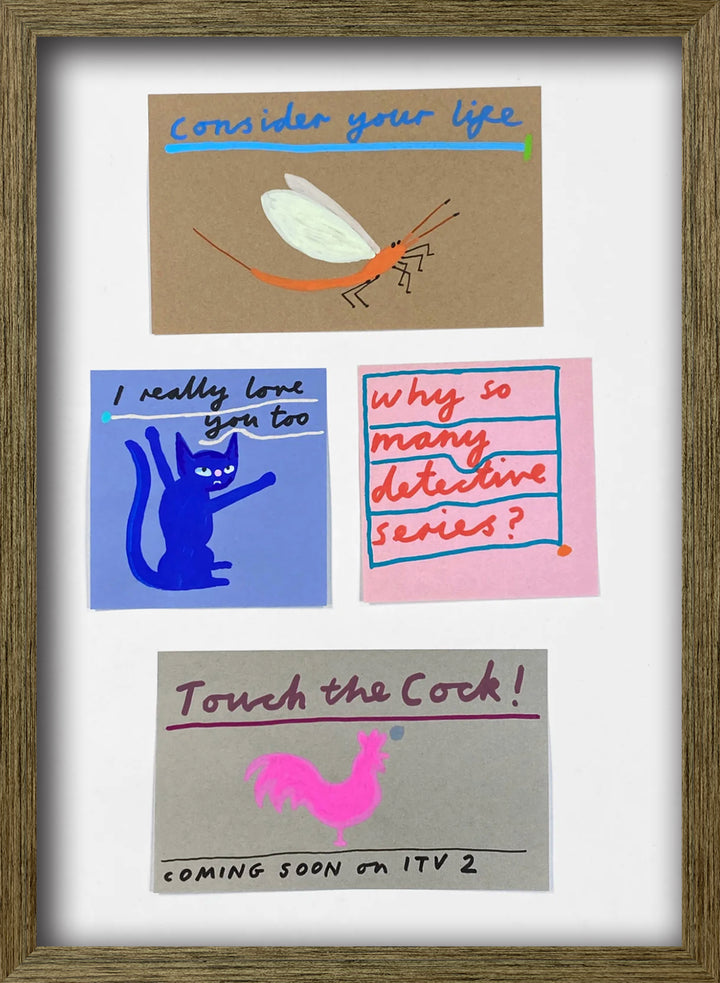 Consider your life
I really love
you too
why so
many
detective
series?
Touch the Cock!
COMING SOON on ITV 2